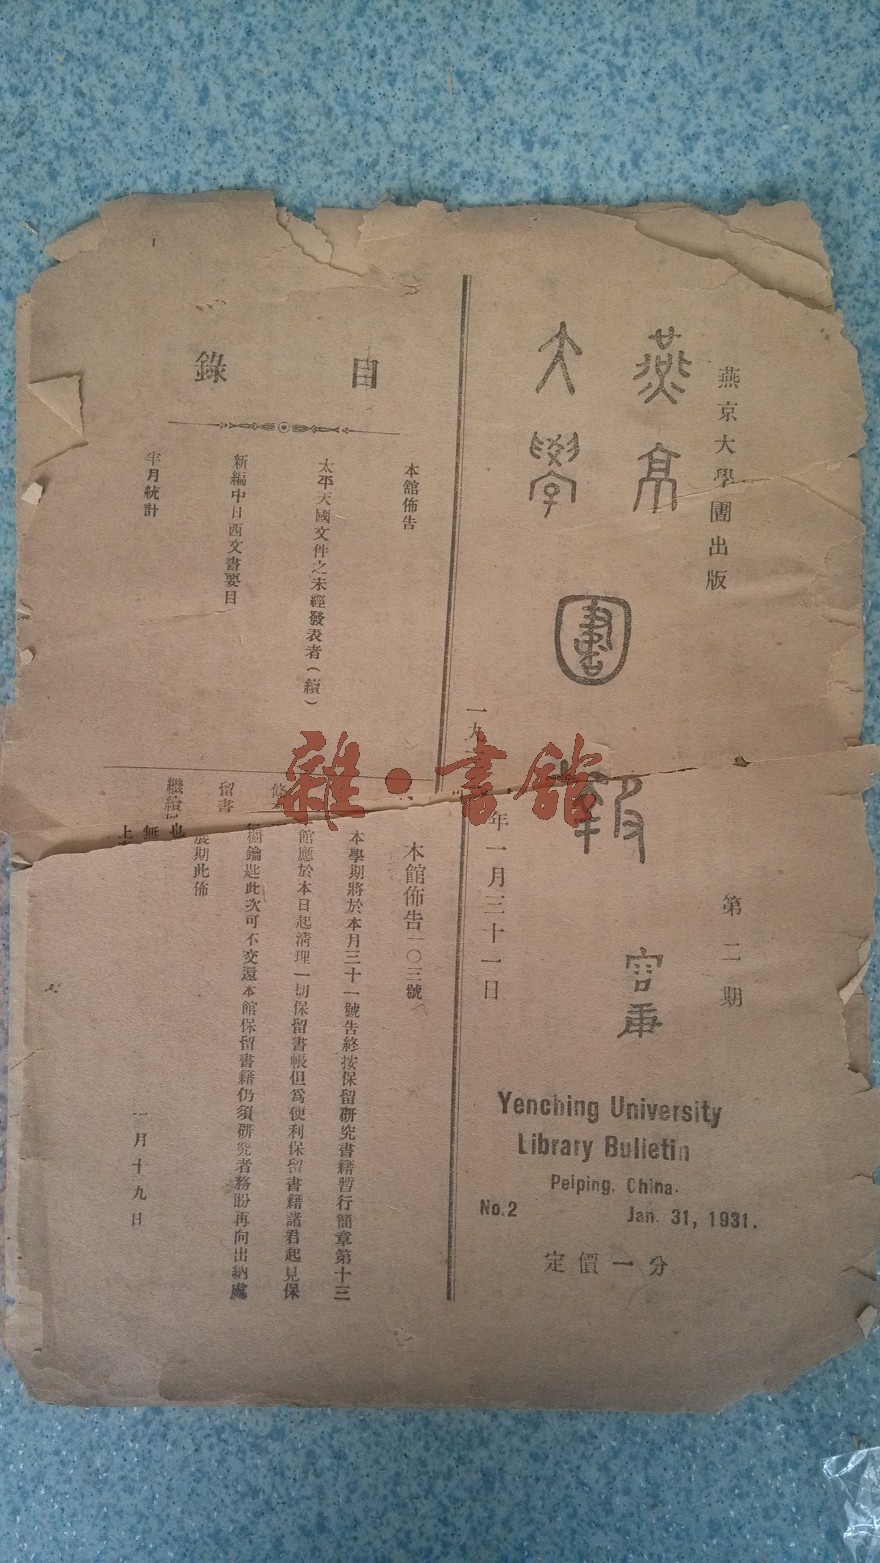 燕京大學圕出版
燕京
大學
圕報
容庚
第二期
一九
年一月三十一日
Yenching University
Library Bulletin
Peiping, China.
No.2
Jan. 31, 1931.
定價一分
目錄
本舘佈告
太平天國文件之未經發表者(續)
新編中日西文書要目
半月統計
本館佈告一〇三號
本學期將於本月三十一號告終按保留研究書籍暫行簡章第十三
館應於本日起清理一切保留書帳但爲便利保留書籍諸君起見保
留書
櫥鑰匙此次可不交還本館保留書籍仍須研究者務盼再向出納處
繼續
展期此佈
一月十九日
雜·書舘